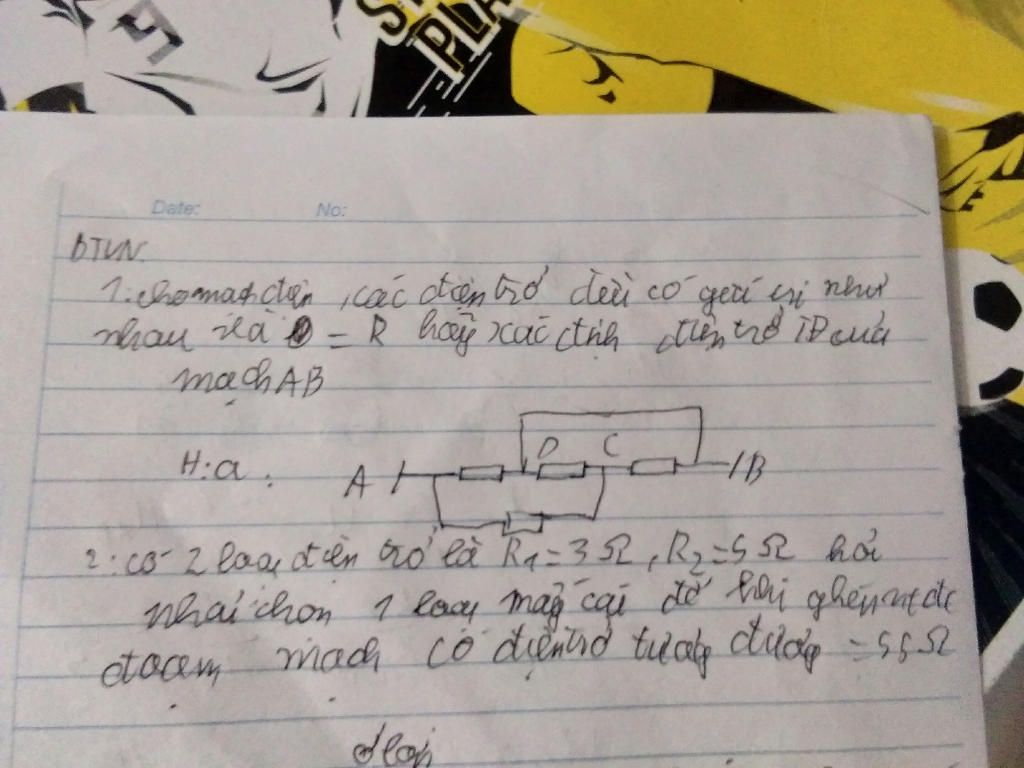 ST
PLA
Date: No:
BTVN.
1. cho mạch điện, các điện trở đều có giá trị như
nhau và = R hãy xác định điện trở TĐ của
mạch AB
D C
H:a: A B
2: có 2 loại điện trở là R1=3Ω, R2=5Ω hỏi
phải chọn 1 loại mấy cái để khi ghép nt đc
đoạn mạch có điện trở tương đương =55Ω